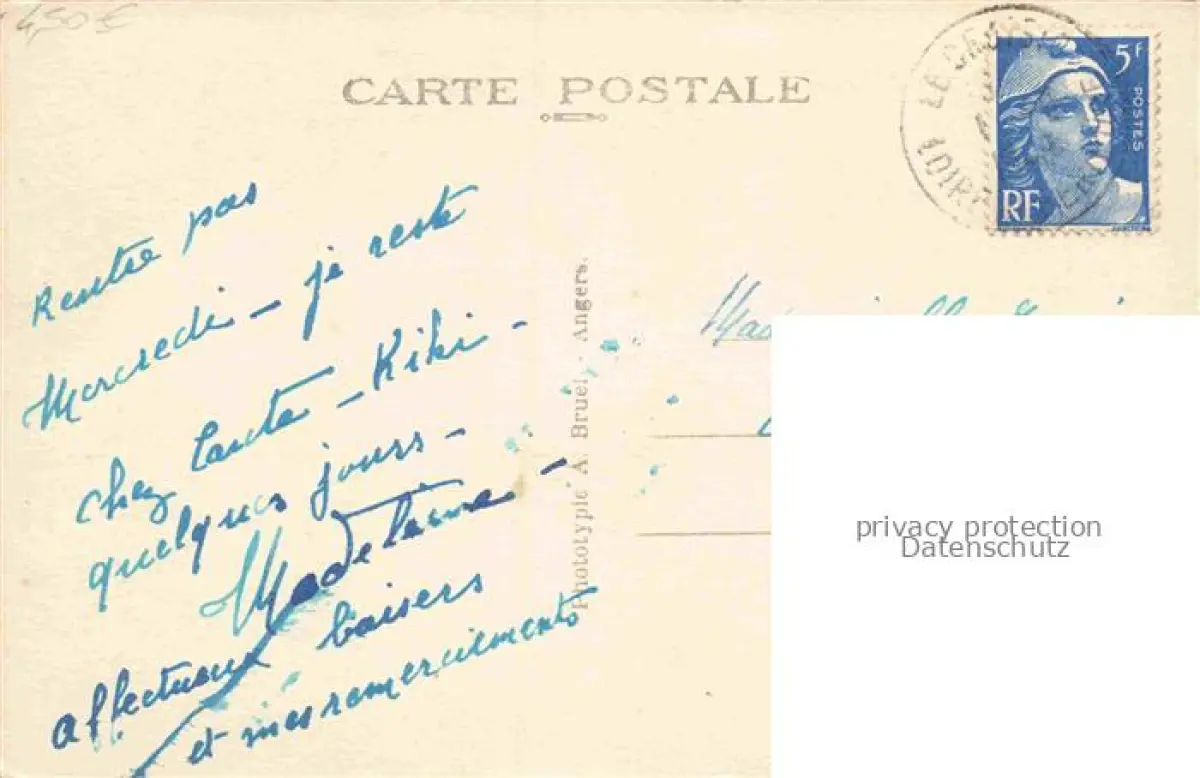 4,50 €
CARTE POSTALE
5F
POSTES
RF
LE CROISIC
LOIRE
Rentre pas
Mercredi - je reste
chez tante - Kiki -
quelques jours -
Madeleine -
affectueux baisers
et mes remerciements
Phototypie A. Bruel - Angers.
privacy protection
Datenschutz